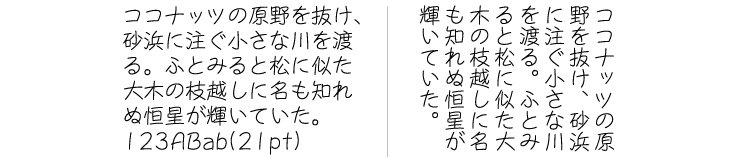 ココナッツの原野を抜け、
砂浜に注ぐ小さな川を渡
る。ふとみると松に似た
大木の枝越しに名も知れ
ぬ恒星が輝いていた。
123ABab(21pt)
ココナッツの原
野を抜け、砂浜
に注ぐ小さな川
を渡る。ふとみ
ると松に似た大
木の枝越しに名
も知れぬ恒星が
輝いていた。